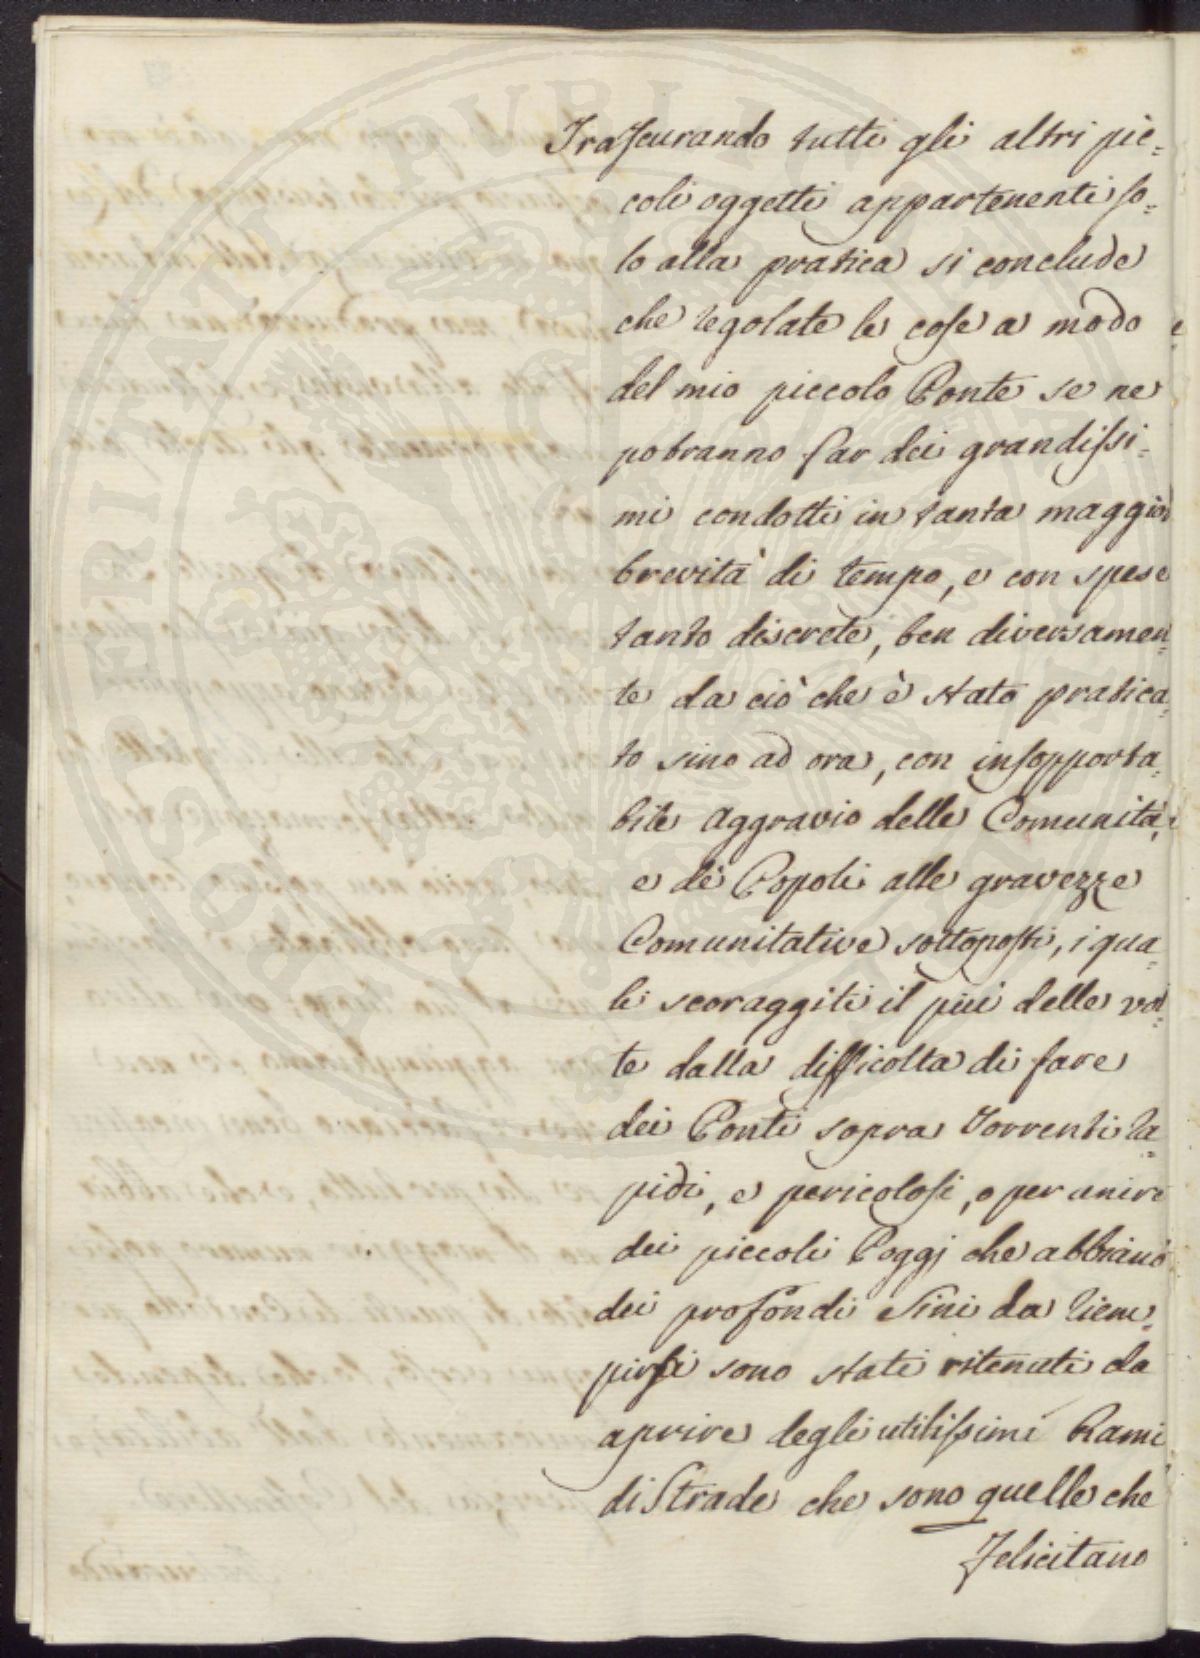 Trascurando tutti gli altri pic=
coli oggetti appartenenti so=
lo alla pratica si conclude
che regolate le cose a modo
del mio piccolo Ponte se ne
potranno far dei grandissi=
mi condotti in tanta maggior
brevità di tempo, e con spese
tanto discrete, ben diversamen=
te da ciò che è stato pratica=
to sino ad ora, con insopporta=
bile aggravio delle Comunità,
e de' Popoli alle gravezze
Comunitative sottoposti, i qua=
li scoraggiti il più delle vol=
te dalla difficolta di fare
dei Ponti sopra Torrenti ra=
pidi, e pericolosi, o per unire
dei piccoli Poggj che abbiano
dei profondi Sini da riem=
pirsi sono stati ritenuti da
aprire degli utilissimi Rami
di Strade che sono quelle che
felicitano
POSTERITATI PUBLICAE